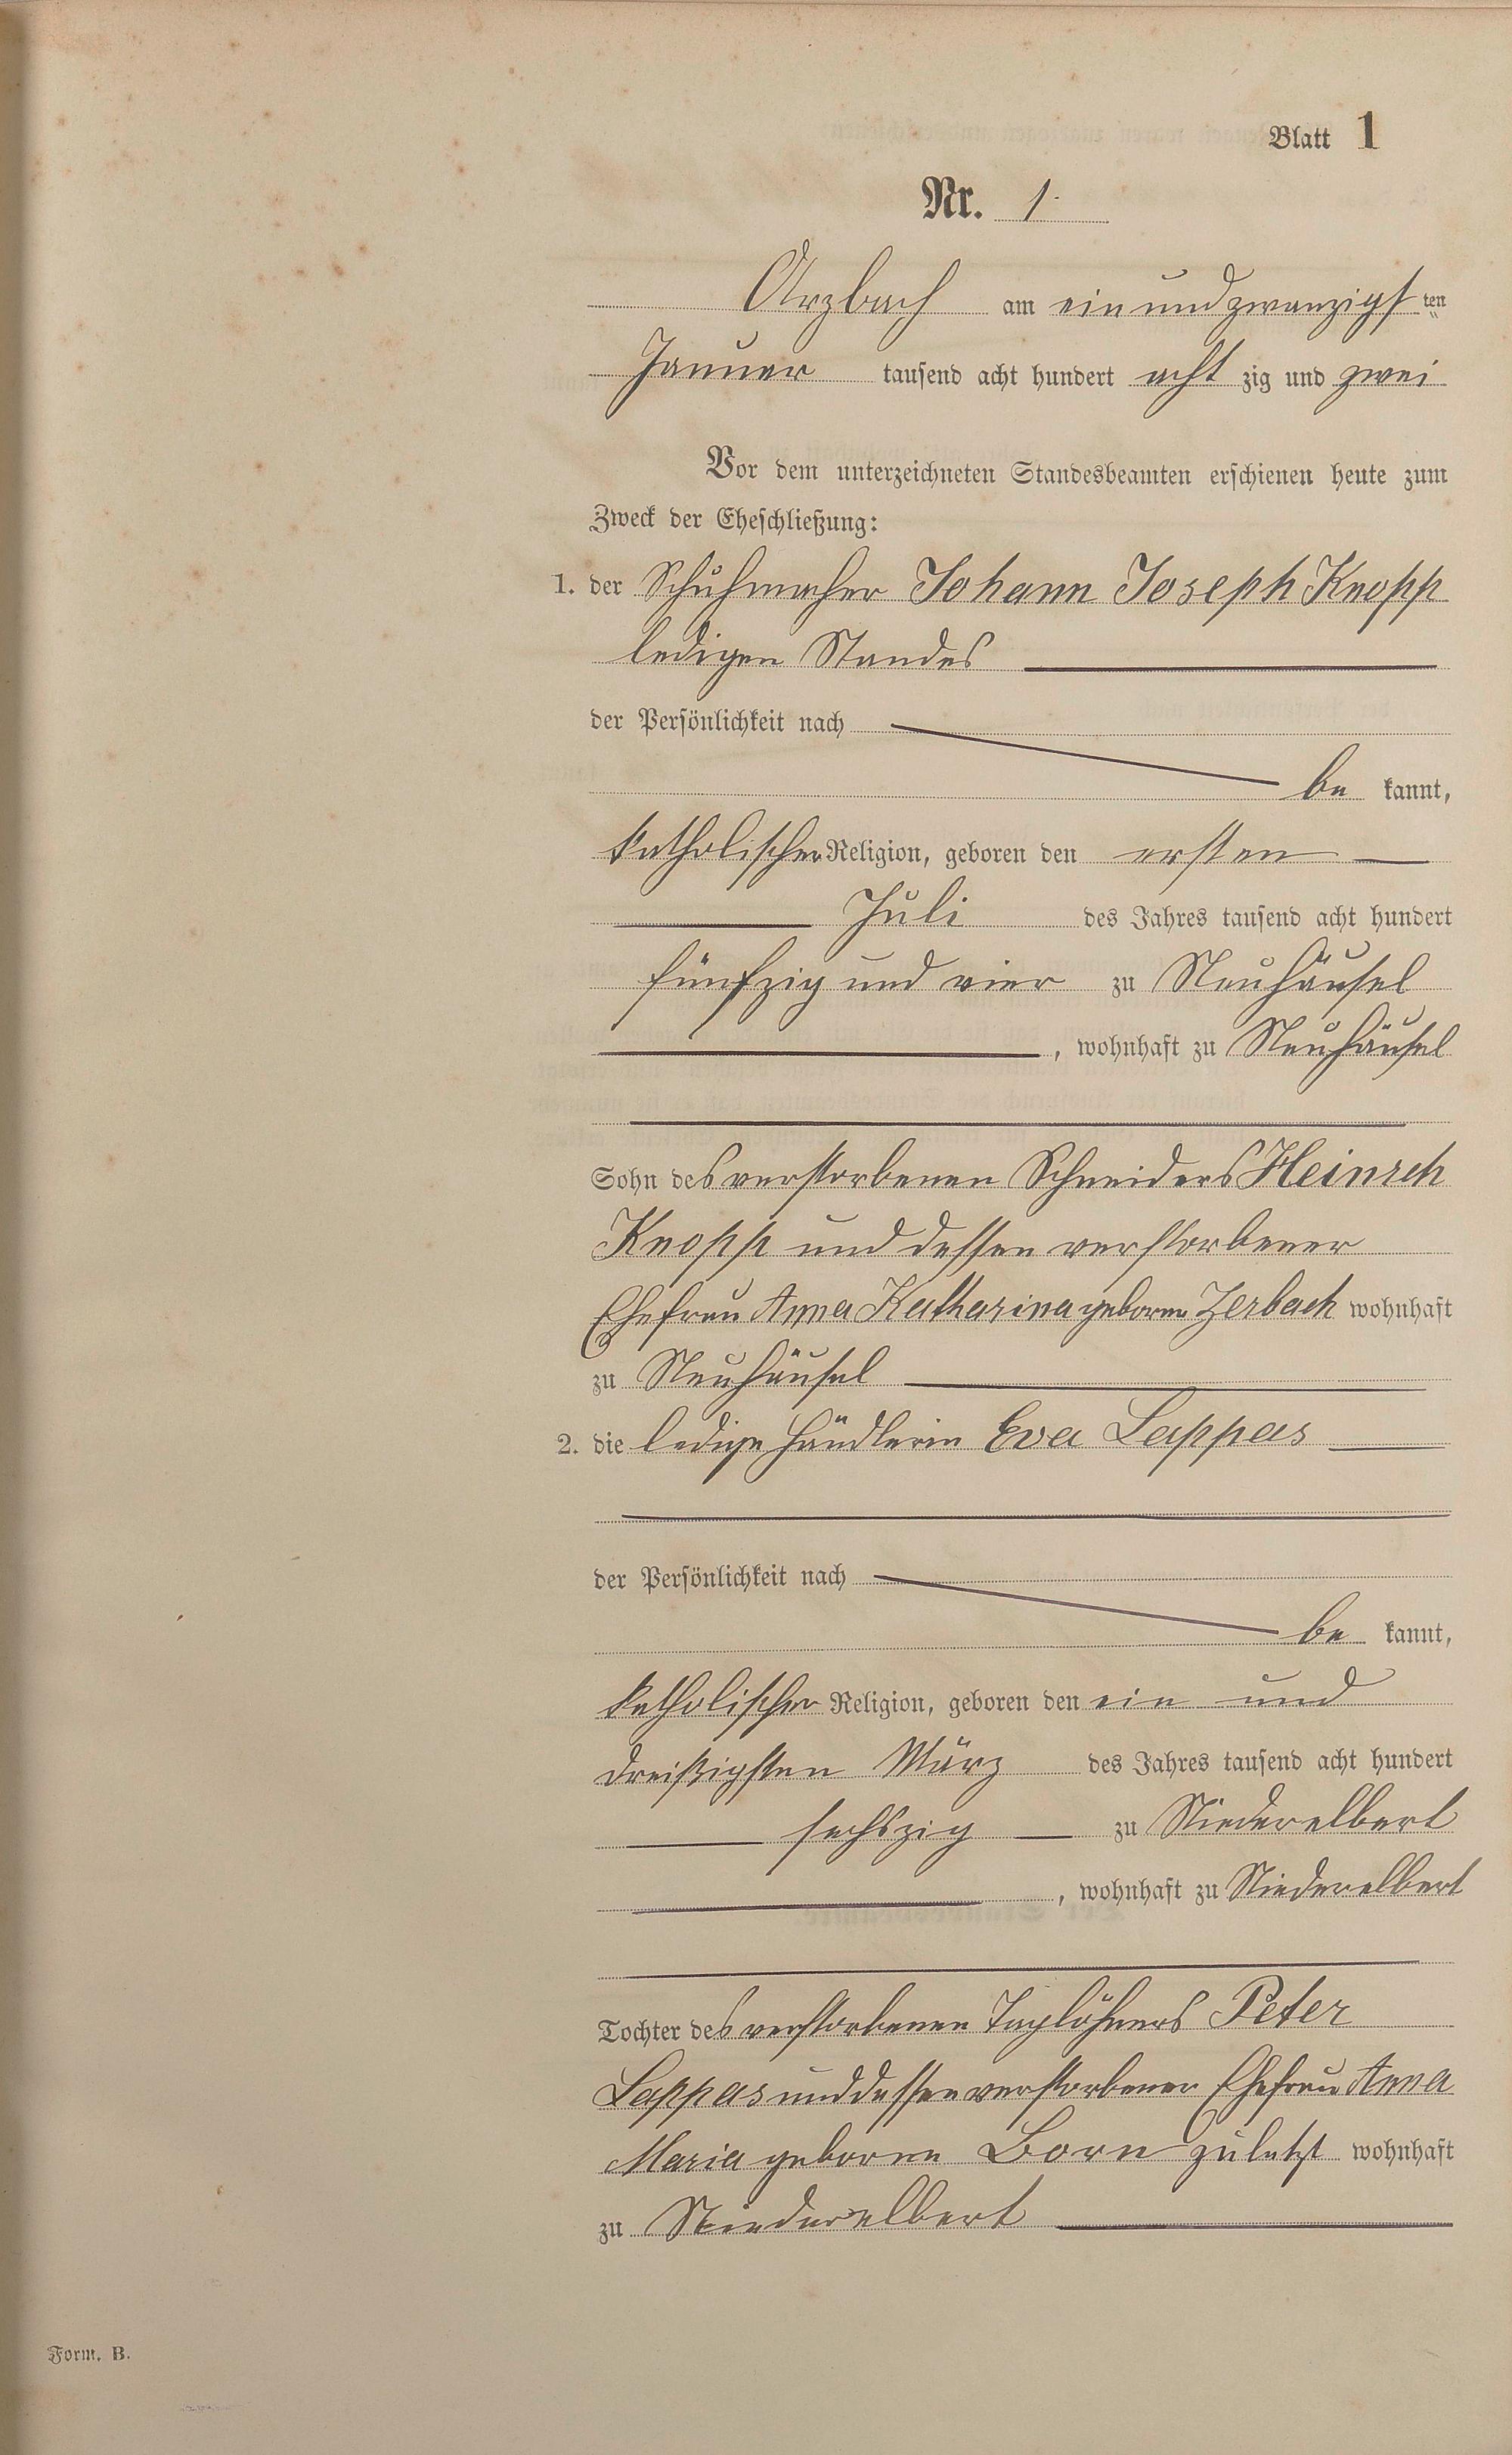 Blatt 1
Nr. 1.
Arzbach am ein und zwanzigst ten
Januar tausend acht hundert acht zig und zwei
Vor dem unterzeichneten Standesbeamten erschienen heute zum
Zweck der Eheschließung:
1. der Schuhmacher Johann Joseph Knopp
ledigen Standes
der Persönlichkeit nach
be kannt,
katholischer Religion, geboren den ersten
Juli des Jahres tausend acht hundert
fünfzig und vier zu Neuhäusel
, wohnhaft zu Neuhäusel
Sohn des verstorbenen Schneiders Heinrch
Knopp und dessen verstorbener
Ehefrau Anna Katharina geborne Zerbach wohnhaft
zu Neuhäusel
2. die ledige Händlerin Eva Lappas
der Persönlichkeit nach
be kannt,
katholischer Religion, geboren den ein und
dreißigsten März des Jahres tausend acht hundert
sechszig zu Niederelbert
, wohnhaft zu Niederelbert
Tochter des verstorbenen Taglöhners Peter
Lappas und dessen verstorbener Ehefrau Anna
Maria geborne Born zuletzt wohnhaft
zu Niederelbert
Form. B.